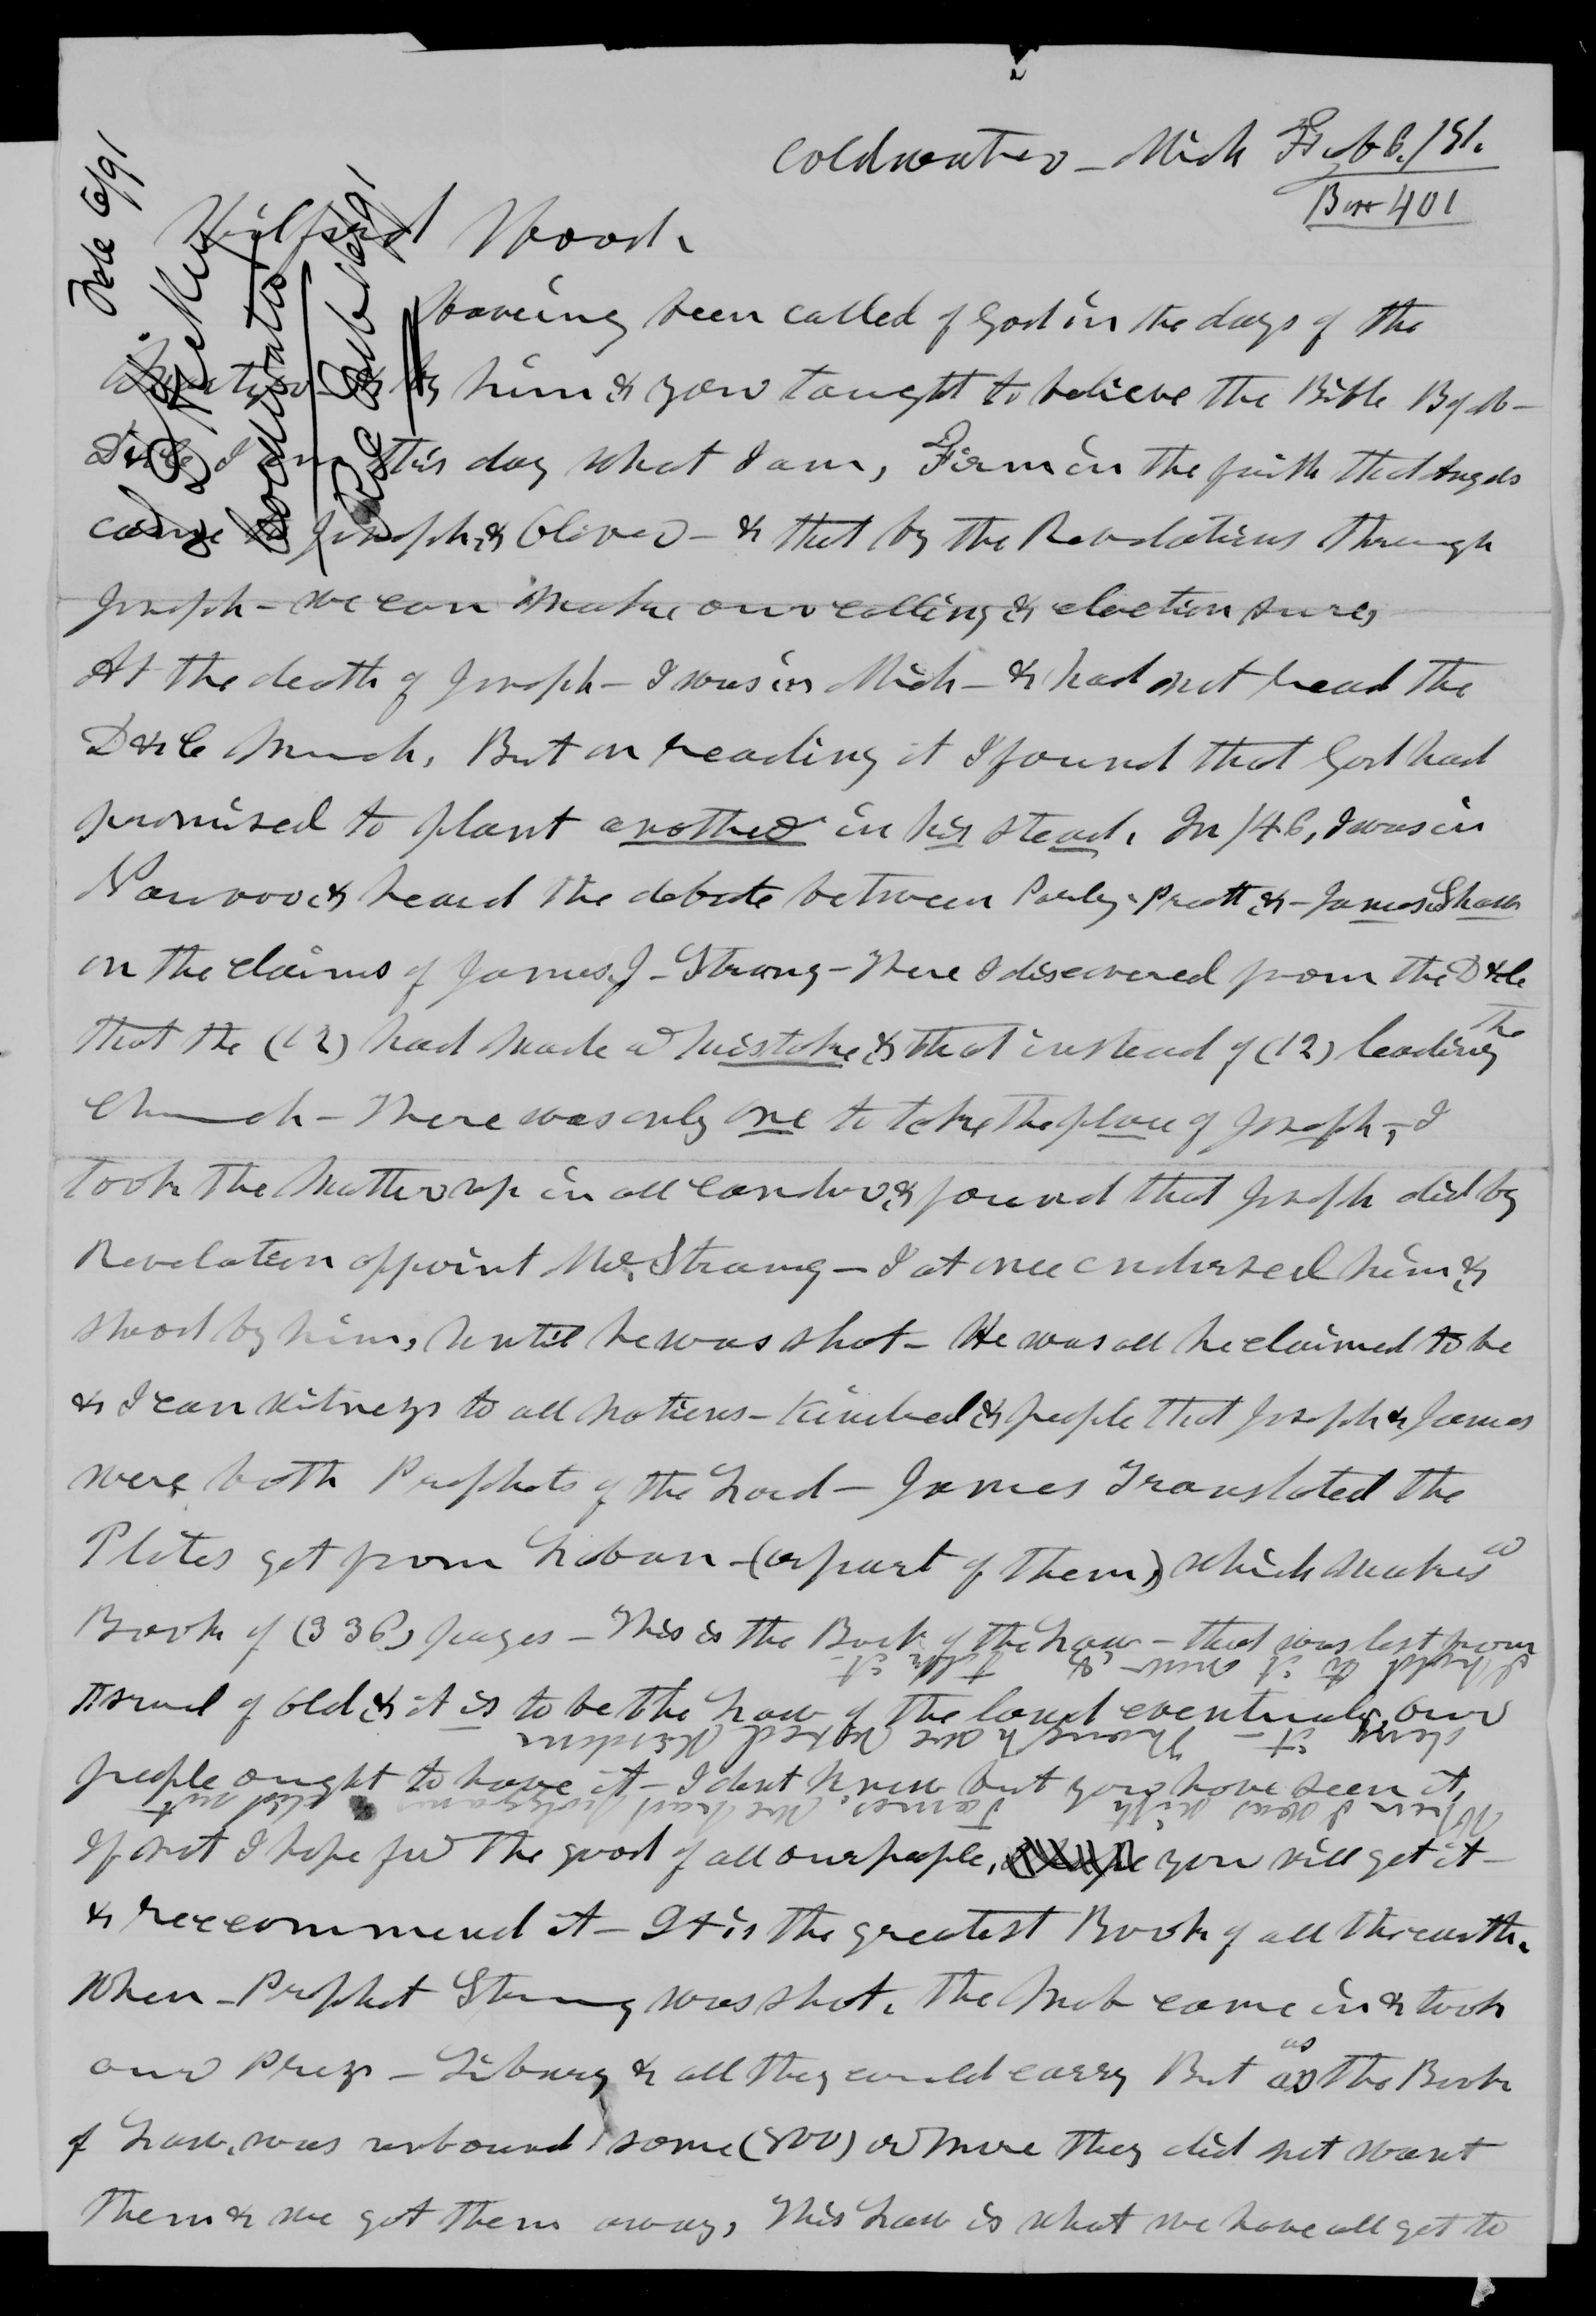 Coldwater - Mich Feb 6. /91.
Box 401
Feb 6/91
Wilford Wood.
Haveing been called of God in the days of the
him & you taught to believe the Bible B of M -
I am this day what I am, Firm in the faith that Angels
came to Joseph & Oliver - & that by the Revelations through
Joseph - we can make our calling & election sure,
At the death of Joseph - I was in Mich - & had not read the
D & C much, But on reading it I found that God had
promised to plant another in his stead. In /46, I was in
Nauvoo & heard the debate between Parley Pratt & - James Shaw
on the claims of James J - Strang - There I discovered from the D & C
that the (12) had made a mistake & that instead of (12) leading the
Church - There was only one to take the place of Joseph, - I
took the matter up in all candor & found that Joseph did by
Revelation appoint Mr. Strang - I at once endorsed him &
stood by him, until he was shot - He was all he claimed to be
& I can witness to all nations - Kindred & people that Joseph & James
were both Prophets of the Lord - James Translated the
Plates got from Laban - (or part of them) which makes a
Book of (336) pages - This is the Book of the Law - that was lost from
Israel of old & it is to be the Law of the land eventualy, Our
people ought to have it - I dont know but you have seen it,
If not I hope for the good of all our people, you will get it -
& reccommend it - It is the greatest Book of all the earth.
When - Prophet Strang was shot. The mob came in & took
our Press - Libary & all they could carry But as as the Book
of Law, was unbound some (800) or more they did not want
them & we got them away, This Law is what we have all got to
When I was with James. We had polygamy did not
deny it -